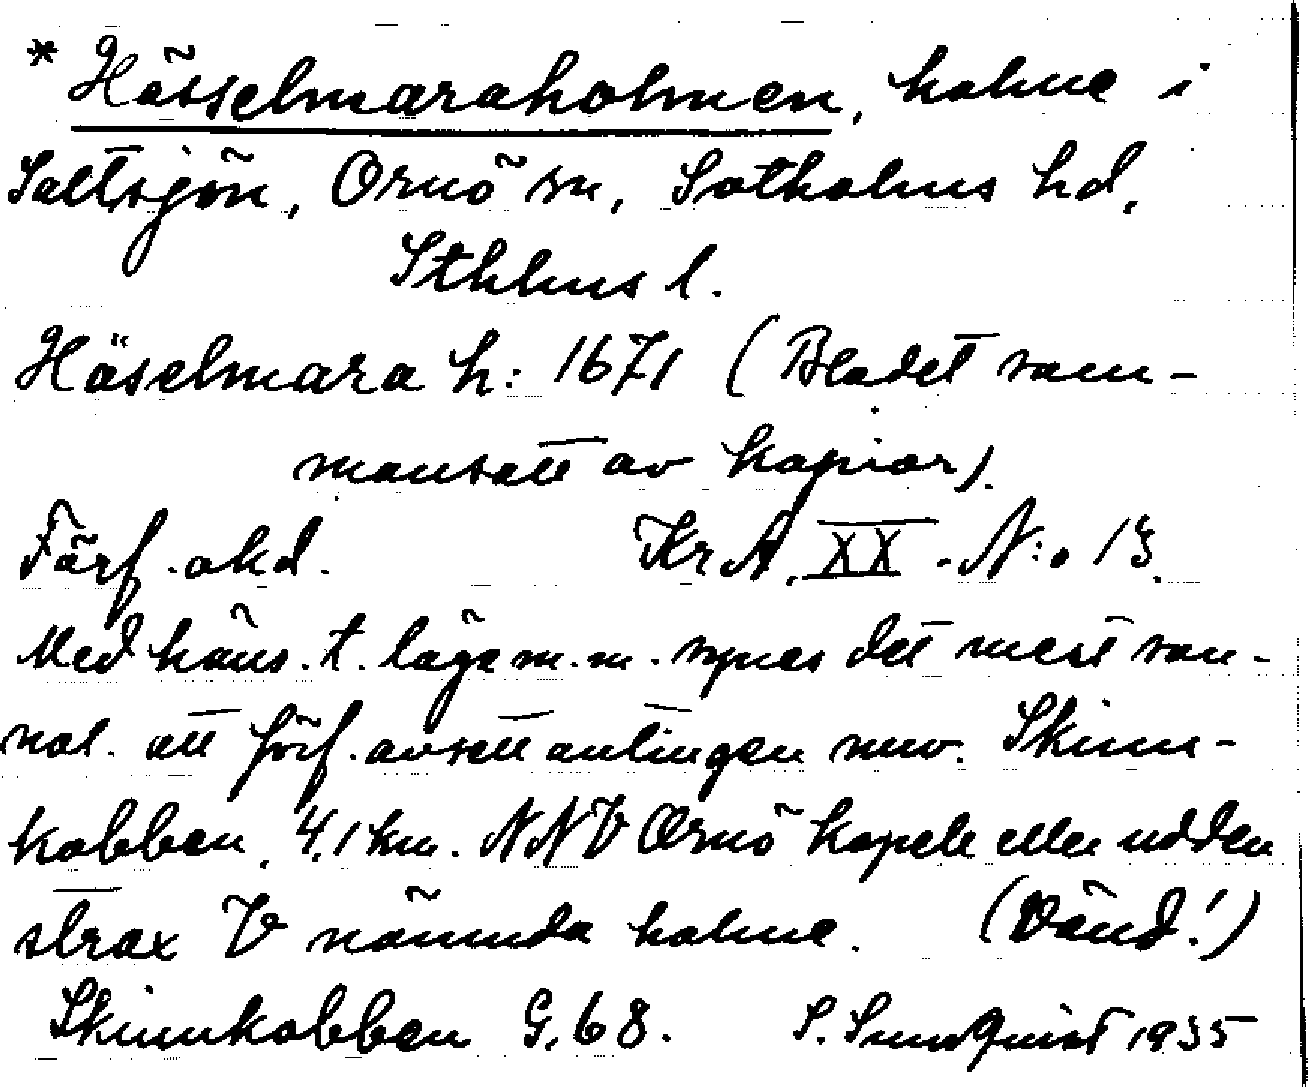 * Hässelmaraholmen, holme i
Saltsjön, Ornö sn, Sotholms hd,
Sthlms l.
Häselmara h: 1671 (Bladet sam-
mansatt av kopior).
Förf. okd. KrA, XX - N:o 13.
Med häns. t. läge m.m. synes det mest san-
nol. att förf. avsett antingen nuv. Skinn-
kobben, 4,1 km. NNV Ornö kapell eller udden
strax V nämnda holme. (Vänd!)
Skinnkobben G. 68. S. Sundquist 1935